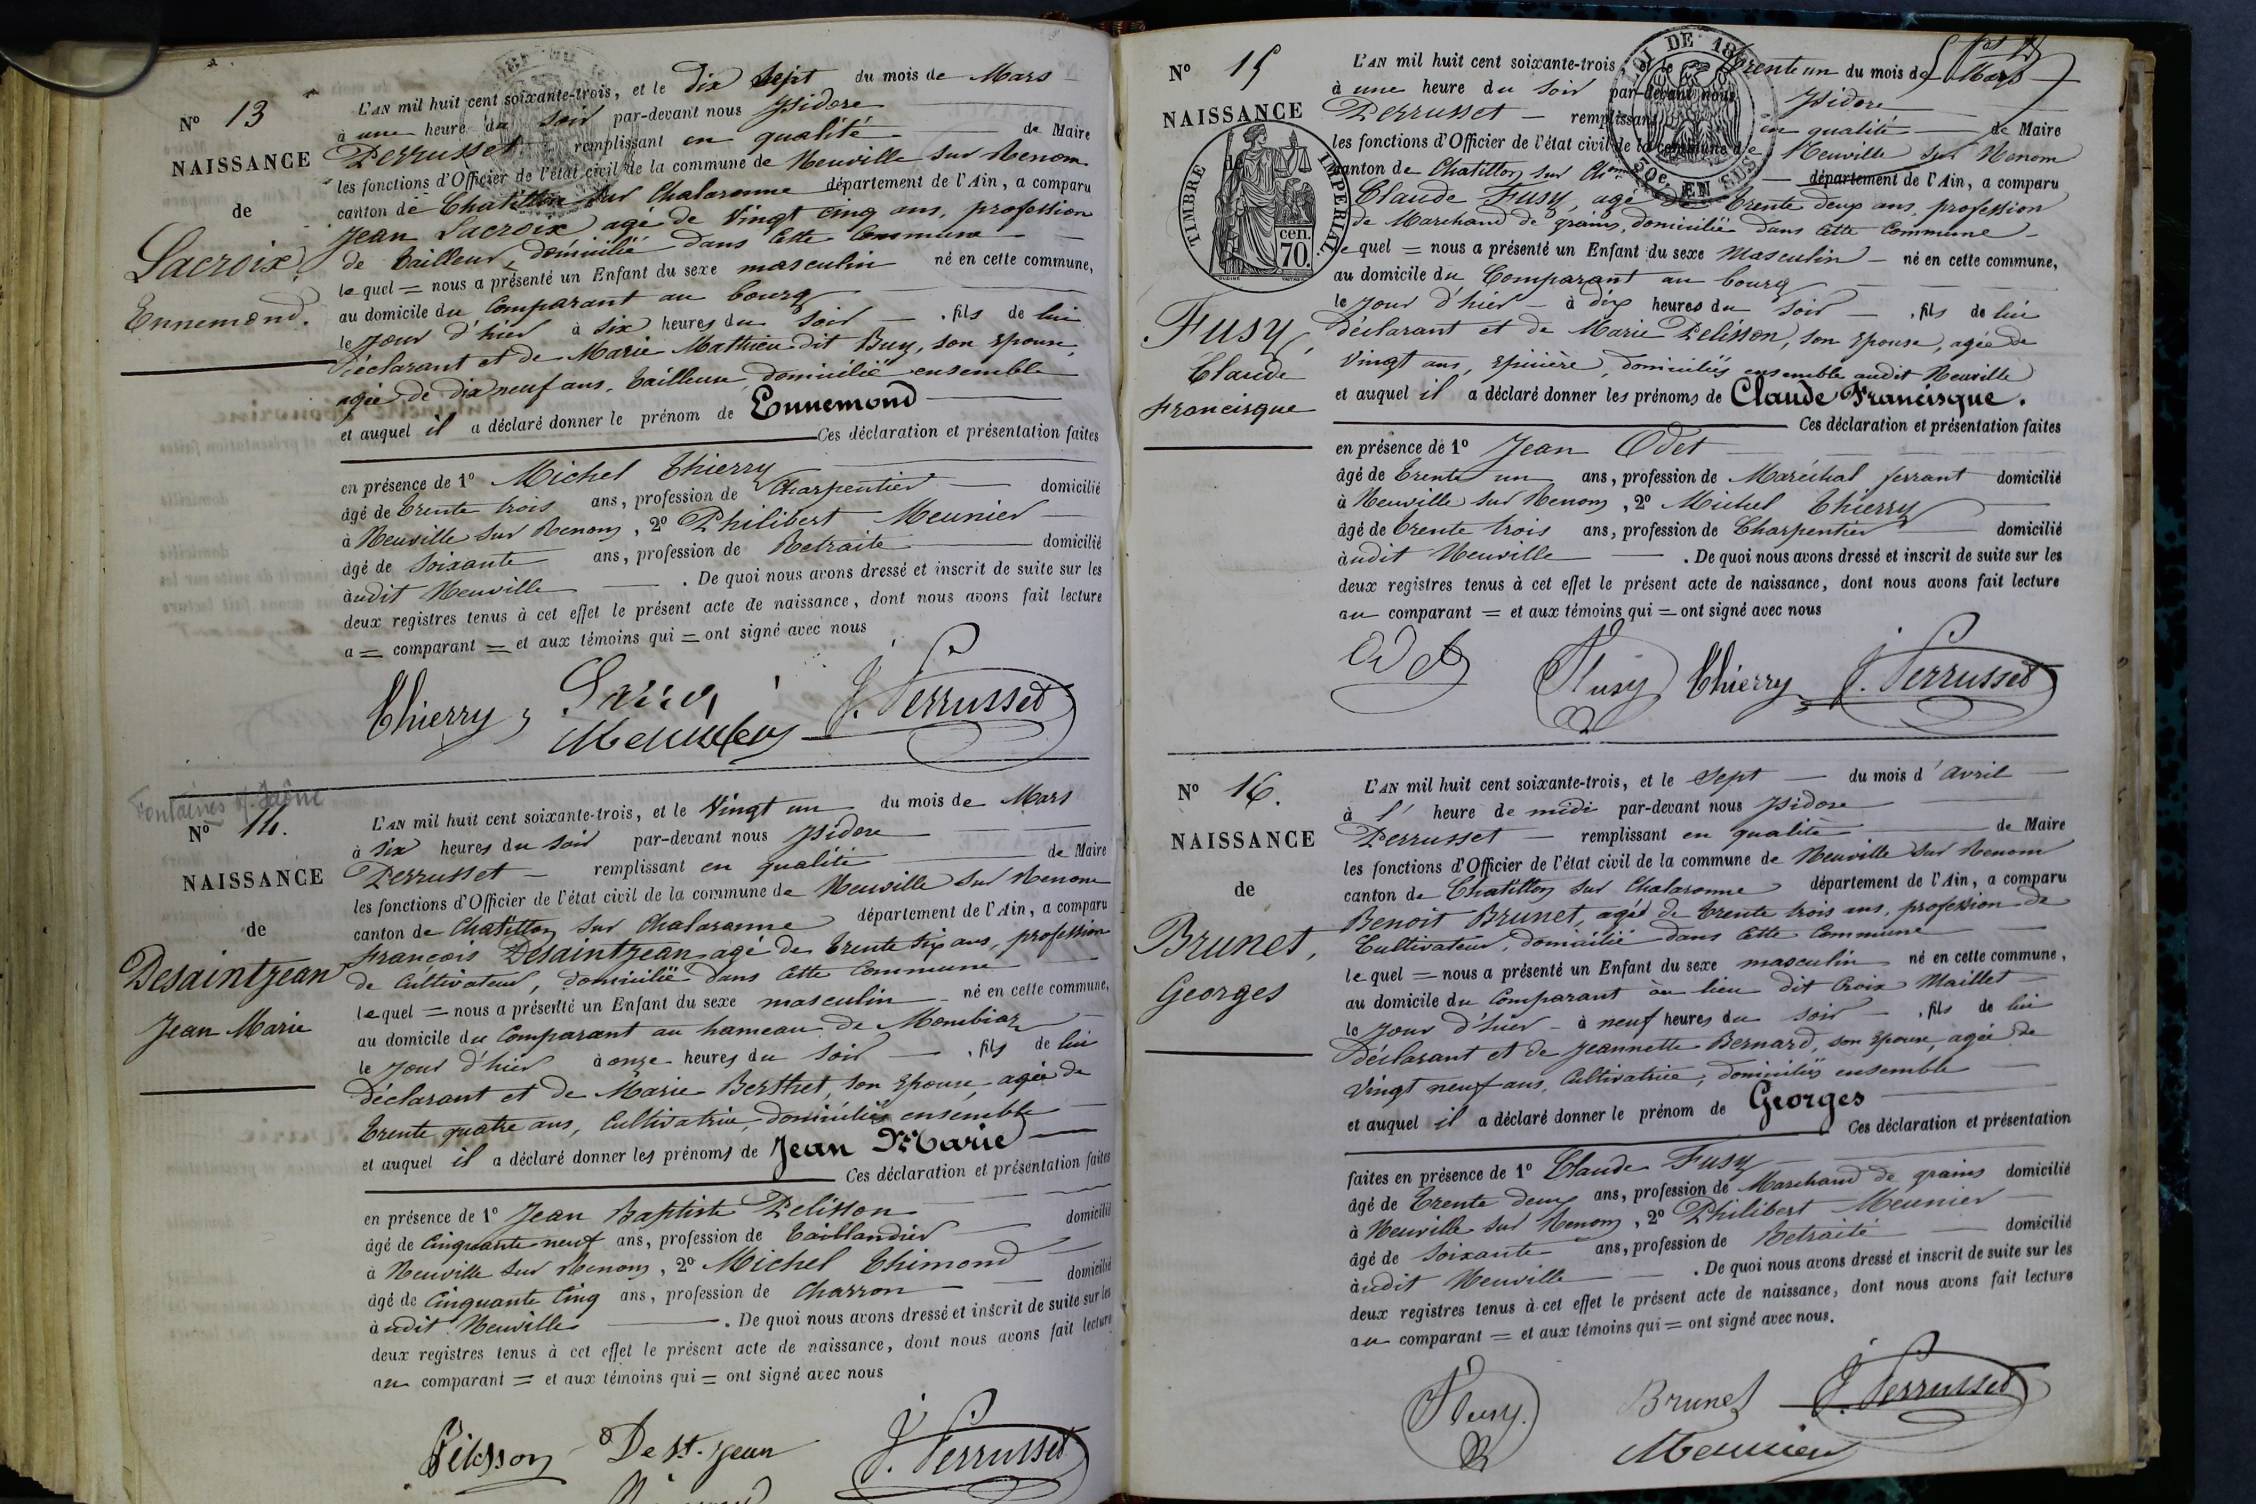 N° 13
NAISSANCE
de
Lacroix,
Ennemond.
L'AN mil huit cent soixante-trois, et le dix sept du mois de Mars
à une heure du soir par-devant nous Isidore
Perrusset remplissant en qualité de Maire
les fonctions d'Officier de l'état civil de la commune de Neuville sur Renom
canton de Chatillon sur Chalaronne département de l'Ain, a comparu
Jean Lacroix agé de Vingt cinq ans, profession
de tailleur, domicilié dans cette Commune
lequel = nous a présenté un Enfant du sexe masculin né en cette commune,
au domicile du Comparant au bourg
le jour d'hier à six heures du soir , fils de lui
déclarant et de Marie Mathieu dit Buy, son épouse,
agée de dix neuf ans, tailleuse, domiciliés ensemble
et auquel il a déclaré donner le prénom de Ennemond
Ces déclaration et présentation faites
en présence de 1° Michel Thierry
âgé de trente trois ans, profession de Charpentier domicilié
à Neuville sur Renom, 2° Philibert Meunier
âgé de soixante ans, profession de Retraité domicilié
audit Neuville . De quoi nous avons dressé et inscrit de suite sur les
deux registres tenus à cet effet le présent acte de naissance, dont nous avons fait lecture
a = comparant = et aux témoins qui = ont signé avec nous
Thierry J. Perrusset
Meunier
Fontaines s/ Saône
N° 14.
NAISSANCE
de
Desaintjean
Jean Marie
L'AN mil huit cent soixante-trois, et le Vingt un du mois de Mars
à six heures du soir par-devant nous Isidore
Perrusset remplissant en qualité de Maire
les fonctions d'Officier de l'état civil de la commune de Neuville sur Renom
canton de Chatillon sur Chalaronne département de l'Ain, a comparu
François Desaintjean agé de trente six ans, profession
de Cultivateur, domicilié dans cette Commune
lequel = nous a présenté un Enfant du sexe masculin né en cette commune,
au domicile du Comparant au hameau de Mombiaz
le jour d'hier à onze heures du soir , fils de lui
déclarant et de Marie Berthet, son épouse, agée de
trente quatre ans, Cultivatrice, domiciliés ensemble
et auquel il a déclaré donner les prénoms de Jean Marie
Ces déclaration et présentation faites
en présence de 1° Jean Baptiste Pelisson
âgé de Cinquante neuf ans, profession de Taillandier domicilié
à Neuville sur Renom, 2° Michel Thimond
âgé de Cinquante Cinq ans, profession de Charron domicilié
audit Neuville . De quoi nous avons dressé et inscrit de suite sur les
deux registres tenus à cet effet le présent acte de naissance, dont nous avons fait lecture
au comparant = et aux témoins qui = ont signé avec nous
Pelisson De St. jean J. Perrusset
N° 15
NAISSANCE
de
Fusy,
Claude
Francisque
TIMBRE IMPERIAL
70 cen.
LOI DE 18
50c. EN SUS
L'AN mil huit cent soixante-trois, et le trente un du mois de Mars
à une heure du soir par-devant nous Isidore
Perrusset remplissant en qualité de Maire
les fonctions d'Officier de l'état civil de la commune de Neuville sur Renom
canton de Chatillon sur Ch département de l'Ain, a comparu
Claude Fusy, agé de trente deux ans, profession
de Marchand de grains, domicilié dans cette Commune
lequel = nous a présenté un Enfant du sexe Masculin né en cette commune,
au domicile du Comparant au bourg
le jour d'hier à dix heures du soir , fils de lui
déclarant et de Marie Pelisson, son épouse, agée de
Vingt ans, épicière, domiciliés ensemble audit Neuville
et auquel il a déclaré donner les prénoms de Claude Francisque.
Ces déclaration et présentation faites
en présence de 1° Jean Odet
âgé de trente un ans, profession de Maréchal ferrant domicilié
à Neuville sur Renom, 2° Michel Thierry
âgé de trente trois ans, profession de Charpentier domicilié
audit Neuville . De quoi nous avons dressé et inscrit de suite sur les
deux registres tenus à cet effet le présent acte de naissance, dont nous avons fait lecture
au comparant = et aux témoins qui = ont signé avec nous
Odet Fusy Thierry J. Perrusset
N° 16.
NAISSANCE
de
Brunet,
Georges
L'AN mil huit cent soixante-trois, et le Sept du mois d'avril
à l' heure de midi par-devant nous Isidore
Perrusset remplissant en qualité de Maire
les fonctions d'Officier de l'état civil de la commune de Neuville sur Renom
canton de Chatillon sur Chalaronne département de l'Ain, a comparu
Benoit Brunet, agé de trente trois ans, profession de
Cultivateur, domicilié dans cette Commune
lequel = nous a présenté un Enfant du sexe masculin né en cette commune,
au domicile du Comparant au lieu dit Croix Maillet
le jour d'hier à neuf heures du soir , fils de lui
déclarant et de Jeannette Bernard, son épouse, agée de
Vingt neuf ans, Cultivatrice, domiciliés ensemble
et auquel il a déclaré donner le prénom de Georges
Ces déclaration et présentation
faites en présence de 1° Claude Fusy
âgé de trente deux ans, profession de Marchand de grains domicilié
à Neuville sur Renom, 2° Philibert Meunier
âgé de soixante ans, profession de Retraité domicilié
audit Neuville . De quoi nous avons dressé et inscrit de suite sur les
deux registres tenus à cet effet le présent acte de naissance, dont nous avons fait lecture
au comparant = et aux témoins qui = ont signé avec nous.
Fusy. Brunet J. Perrusset
Meunier